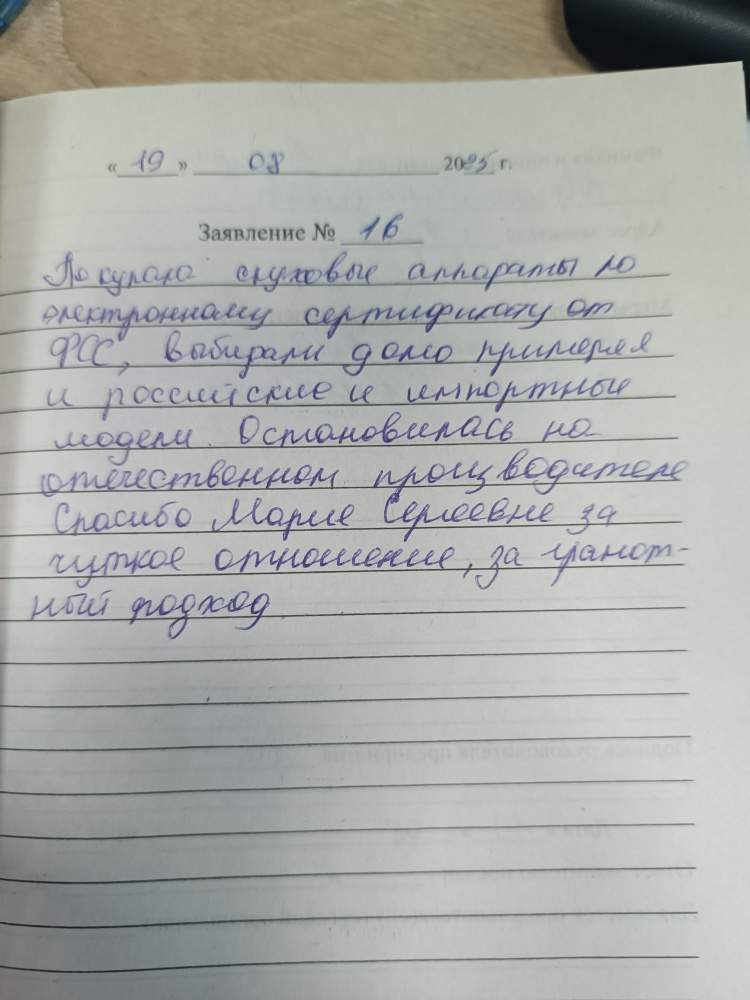 «19» 08 2025 г.
Заявление № 16
Покупала слуховые аппараты по
электронному сертификату от
ФСС, выбирали долго примеряя
и российские и импортные
модели. Остановилась на
отечественном производителе
Спасибо Марие Сергеевне за
чуткое отношение, за грамот-
ный подход